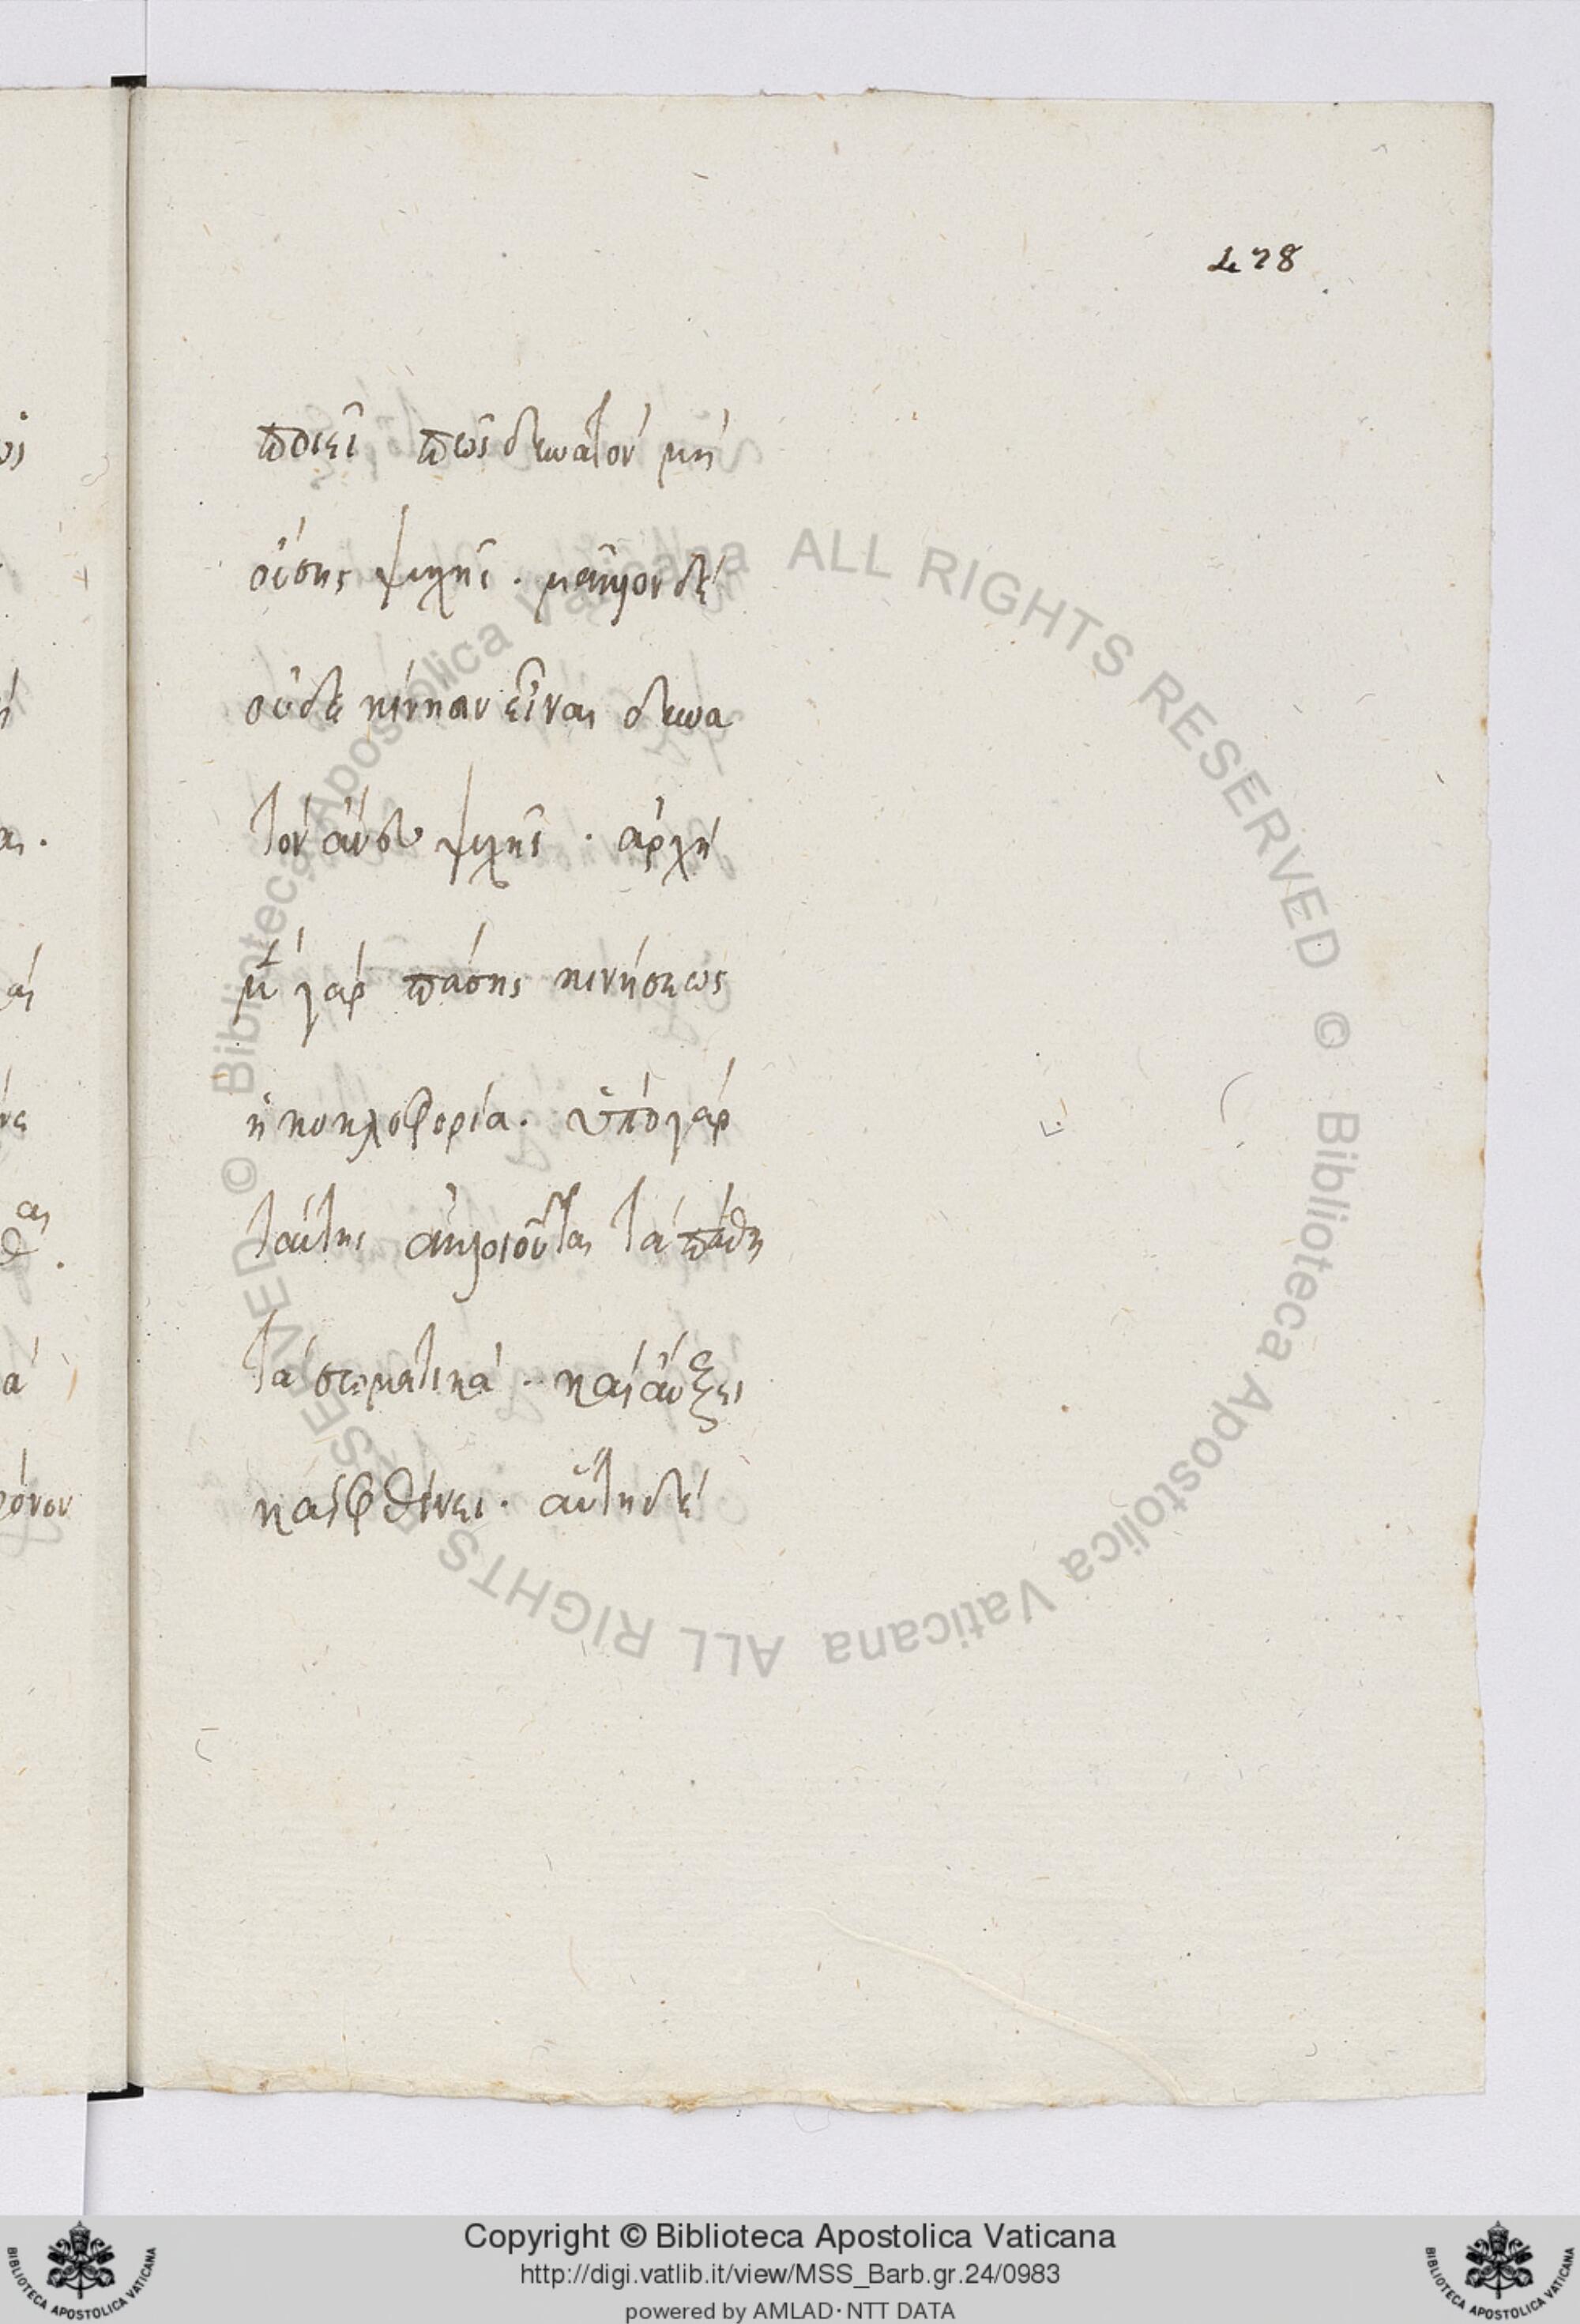 478
ποιεῖ πῶς δυνατὸν μὴ
οὔσης ψυχῆς. μᾶλλον δὲ
οὐδὲ κίνησιν εἶναι δυνα
τὸν ἄνευ ψυχῆς. ἀρχὴ
μὲν γὰρ πάσης κινήσεως
ἡ κυκλοφορία. ὑπὸ γὰρ
ταύτης ἀλλοιοῦται τὰ πάθη
τὰ σωματικά. καὶ αὔξει
καὶ φθίνει. αὕτη δὲ
© Biblioteca Apostolica Vaticana ALL RIGHTS RESERVED © Biblioteca Apostolica Vaticana ALL RIGHTS RESERVED
Copyright © Biblioteca Apostolica Vaticana
http://digi.vatlib.it/view/MSS_Barb.gr.24/0983
powered by AMLAD·NTT DATA
BIBLIOTECA APOSTOLICA VATICANA
BIBLIOTECA APOSTOLICA VATICANA